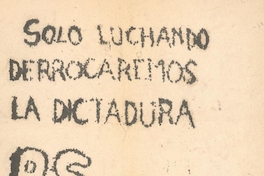 SOLO LUCHANDO
DERROCAREMOS
LA DICTADURA
PS